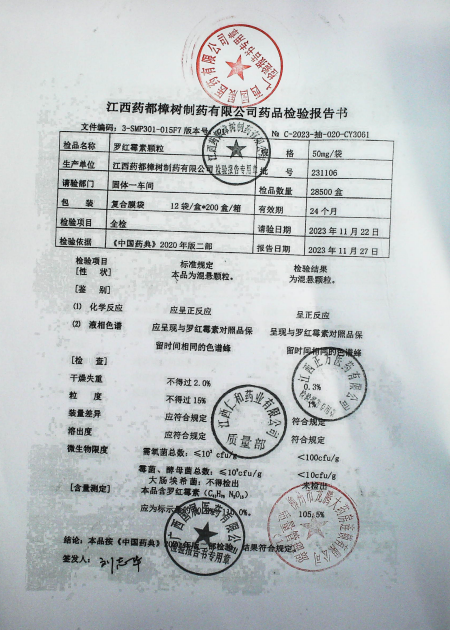 江西药都樟树制药有限公司药品检验报告书
文件编码：3-SMP301-015F7 版本号 № C-2023-抽-020-CY3061
检品名称 罗红霉素颗粒 格 50mg/袋
生产单位 江西药都樟树制药有限公司 批号 231106
请验部门 固体一车间 检品数量 28500 盒
包装 复合膜袋 12 袋/盒*200 盒/箱 有效期 24 个月
检验项目 全检 请验日期 2023 年 11 月 22 日
检验依据 《中国药典》2020 年版二部 报告日期 2023 年 11 月 27 日
检验项目 标准规定 检验结果
[性 状] 本品为混悬颗粒。 为混悬颗粒。
[鉴 别]
⑴ 化学反应 应呈正反应 呈正反应
⑵ 液相色谱 应呈现与罗红霉素对照品保 呈现与罗红霉素对照品保
留时间相同的色谱峰 留时间相同的色谱峰
[检 查]
干燥失重 不得过 2.0% 0.3%
粒 度 不得过 15% 1%
装量差异 应符合规定 符合规定
溶出度 应符合规定 符合规定
微生物限度 需氧菌总数：≤10³ cfu/g <100cfu/g
霉菌、酵母菌总数：≤10²cfu/g <10cfu/g
大肠埃希菌：不得检出 未检出
[含量测定] 本品含罗红霉素
应为标示量 105.5%
结论：本品按《中国药典》 年版二部检验 结果符合规定。
签发人：
广西国泰医药有限公司
检验报告书专用章
检验报告书专用章
江西上和药业有限公司
质量部
江西正方医药有限公司
检验报告书专用章